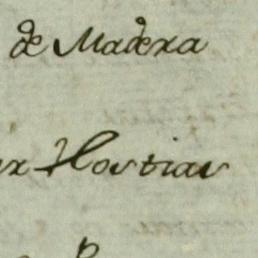 de Madera
Hostias